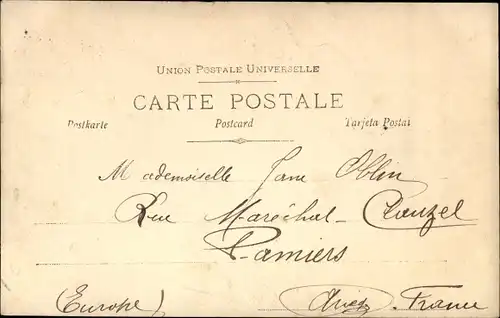 UNION POSTALE UNIVERSELLE
CARTE POSTALE
Postkarte Postcard Tarjeta Postal
Mademoiselle Jane Oblin
Rue Maréchal-Clauzel
Pamiers
(Europe) Arieg. France